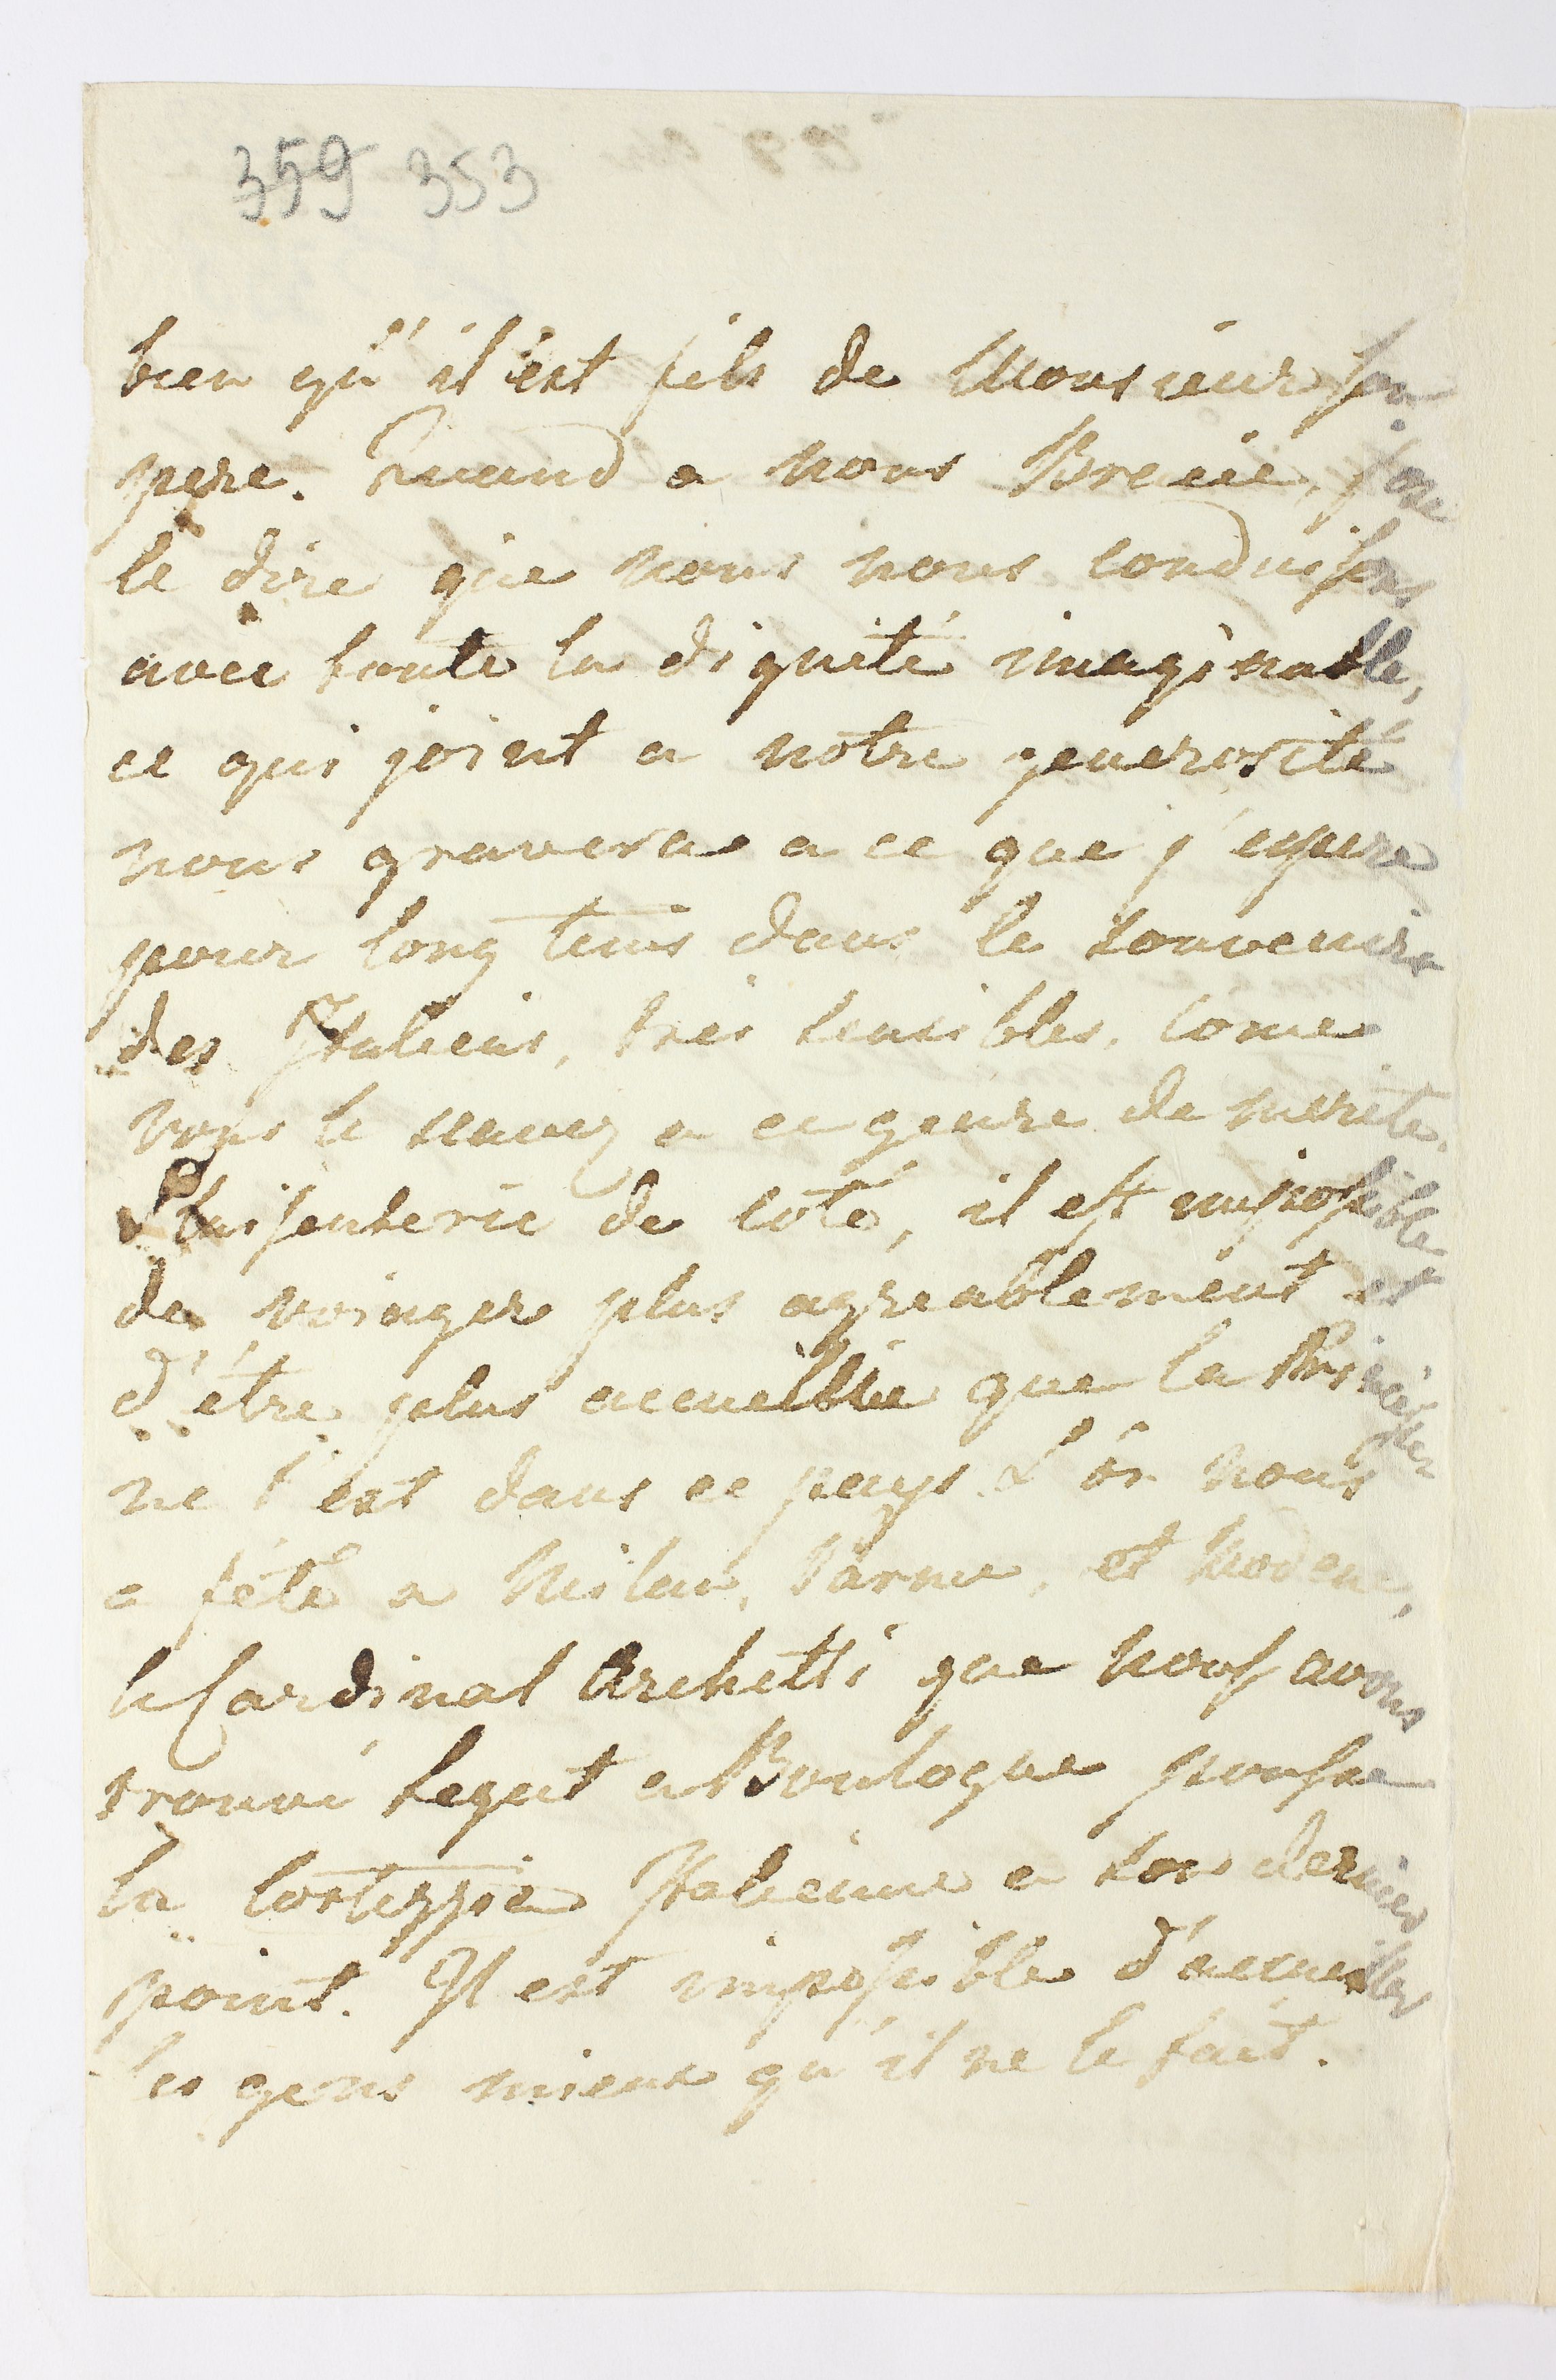 359 353
bien qu'il est fils de Monsieur son
pere. Quand a nous Bracie, j'ose
le dire que nous nous conduisons
avec toute la dignité imaginable,
ce qui joint a notre generosité
nous gravera a ce que j'espere
pour long tems dans le souvenir
des Italiens, tres sensibles, come
vous le savez a ce genre de merite.
Plaisenterie de coté, il est impossible
de voiager plus agreablement et
d'être plus accueillie que la Princesse
ne l'est dans ce pays. L'on nous
a fété a Milan, Parme, et Modene,
le Cardinal Archetti que nous avons
trouvé Legat a Boulogne pousse
la Cortezzia Italienne a son dernier
point. Il est impossible d'acceuiller
les gens mieux qu'il ne le fait.